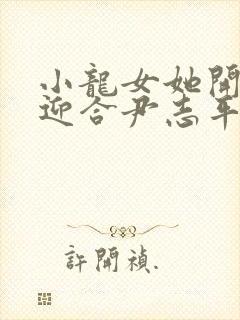 小龍女她開
迎合尹志平
許開禎.